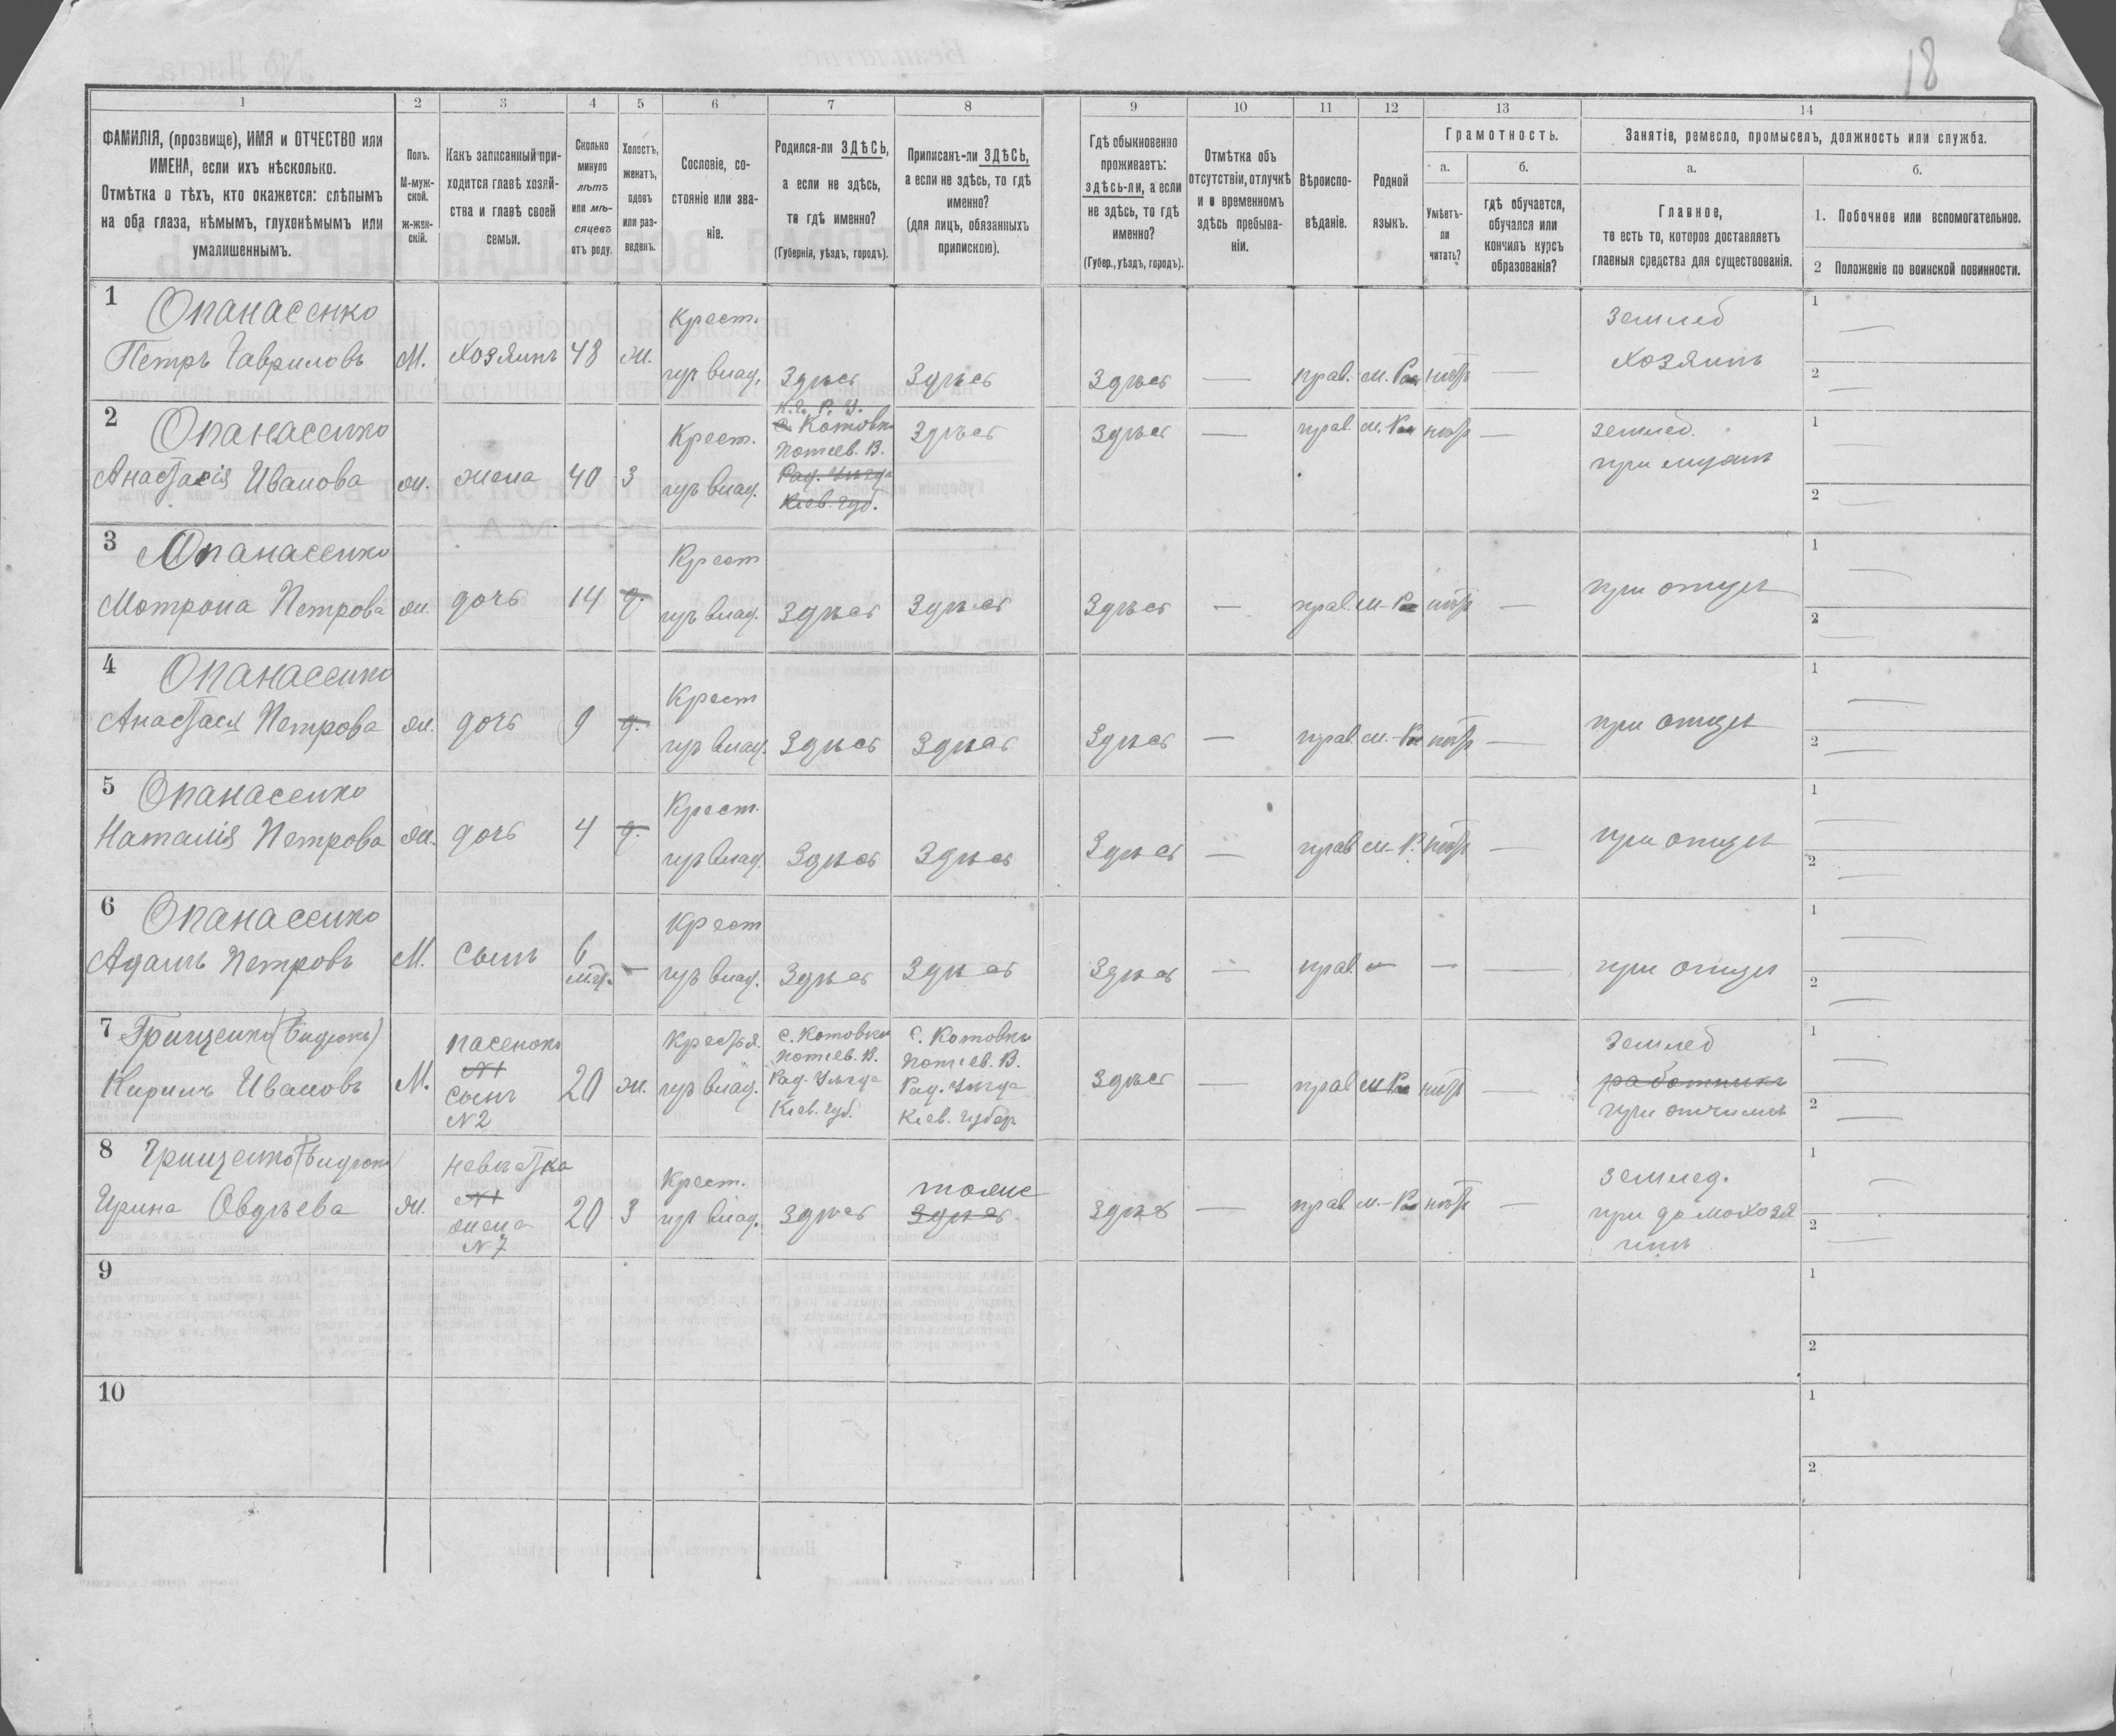 18
1 2 3 4 5 6 7 8 9 10 11 12 13 14
ФАМИЛІЯ, (прозвище), ИМЯ и ОТЧЕСТВО или
ИМЕНА, если ихъ нѣсколько.
Отмѣтка о тѣхъ, кто окажется: слѣпымъ
на оба глаза, нѣмымъ, глухонѣмымъ или
умалишеннымъ.
Полъ.
М-муж-
ской.
ж-жен-
скій.
Какъ записанный при-
ходится главѣ хозяй-
ства и главѣ своей
семьи.
Сколько
минуло
лѣтъ
или мѣ-
сяцевъ
отъ роду.
Холостъ,
женатъ,
вдовъ
или раз-
веденъ.
Сословіе, со-
стояніе или зва-
ніе.
Родился-ли ЗДѢСЬ,
а если не здѣсь,
то гдѣ именно?
(Губернія, уѣздъ, городъ).
Приписанъ-ли ЗДѢСЬ,
а если не здѣсь, то гдѣ
именно?
(для лицъ, обязанныхъ
припискою).
Гдѣ обыкновенно
проживаетъ:
здѣсь-ли, а если
не здѣсь, то гдѣ
именно?
(Губер., уѣздъ, городъ).
Отмѣтка объ
отсутствіи, отлучкѣ
и о временномъ
здѣсь пребыва-
ніи.
Вѣроиспо-
вѣданіе.
Родной
языкъ.
Грамотность.
а.
Умѣетъ-
ли
читать?
б.
гдѣ обучается,
обучался или
кончилъ курсъ
образованія?
Занятіе, ремесло, промыселъ, должность или служба.
а.
Главное,
то есть то, которое доставляетъ
главныя средства для существованія.
б.
1. Побочное или вспомогательное.
2 Положеніе по воинской повинности.
1 Опанасенко
Петръ Гавриловъ
М.
хозяинъ
48
ж.
Крест.
гуъ влад.
Здѣсь
Здѣсь
Здѣсь
—
прав.
м. Рос
нѣтъ
—
землед
хозяинъ
1 —
2 —
2 Опанасенко
Анастасія Иванова
ж.
жена
40
З
Крест.
гуъ влад.
с. Котовки
Потіев. В.
Рад. Уѣзда
Кіев. губ.
Здѣсь
Здѣсь
—
прав.
м. Рос
нѣтъ
—
землед.
при мужѣ
1 —
2 —
3 Опанасенко
Мотрона Петрова
ж.
дочь
14
д.
Крест
гуъ влад.
Здѣсь
Здѣсь
Здѣсь
—
прав.
м-Рос
нѣтъ
—
при отцѣ
1 —
2 —
4 Опанасенко
Анастасія Петрова
ж.
дочь
9
д.
Крест
гуъ влад.
Здѣсь
Здѣсь
Здѣсь
—
прав.
м.-Рос
нѣтъ
—
при отцѣ
1 —
2 —
5 Опанасенко
Наталія Петрова
ж.
дочь
4
д.
Крест.
гуъ влад.
Здѣсь
Здѣсь
Здѣсь
—
прав
м-Р.
нѣтъ
—
при отцѣ
1 —
2 —
6 Опанасенко
Адамъ Петровъ
М.
сынъ
6
мѣц.
—
Крест
гуъ влад.
Здѣсь
Здѣсь
Здѣсь
—
прав.
—
—
—
при отцѣ
1 —
2 —
7 Грищенко (Бидюкъ)
Кирилъ Ивановъ
М.
пасенокъ
№1
сынъ
№2
20
ж.
Крестья.
гуъ влад.
с. Котовки
Потіев. В.
Рад. Уѣзда
Кіев. губ.
с. Котовки
Потіев. В.
Рад. Уѣзда
Кіев. губер
Здѣсь
—
прав
м Рос
нѣтъ
—
Землед
работникъ
при отчимѣ
1 —
2 —
8 Грищенко (Бидюкъ)
Ирина Овдѣева
ж.
невѣстка
№1
жена
№7
20
З
Крест.
гуъ влад.
Здѣсь
тоже
Здѣсь
Здѣсь
—
прав
м-Рос
нѣтъ
—
землед.
при домохозя
инѣ
1 —
2 —
9
1
2
10
1
2